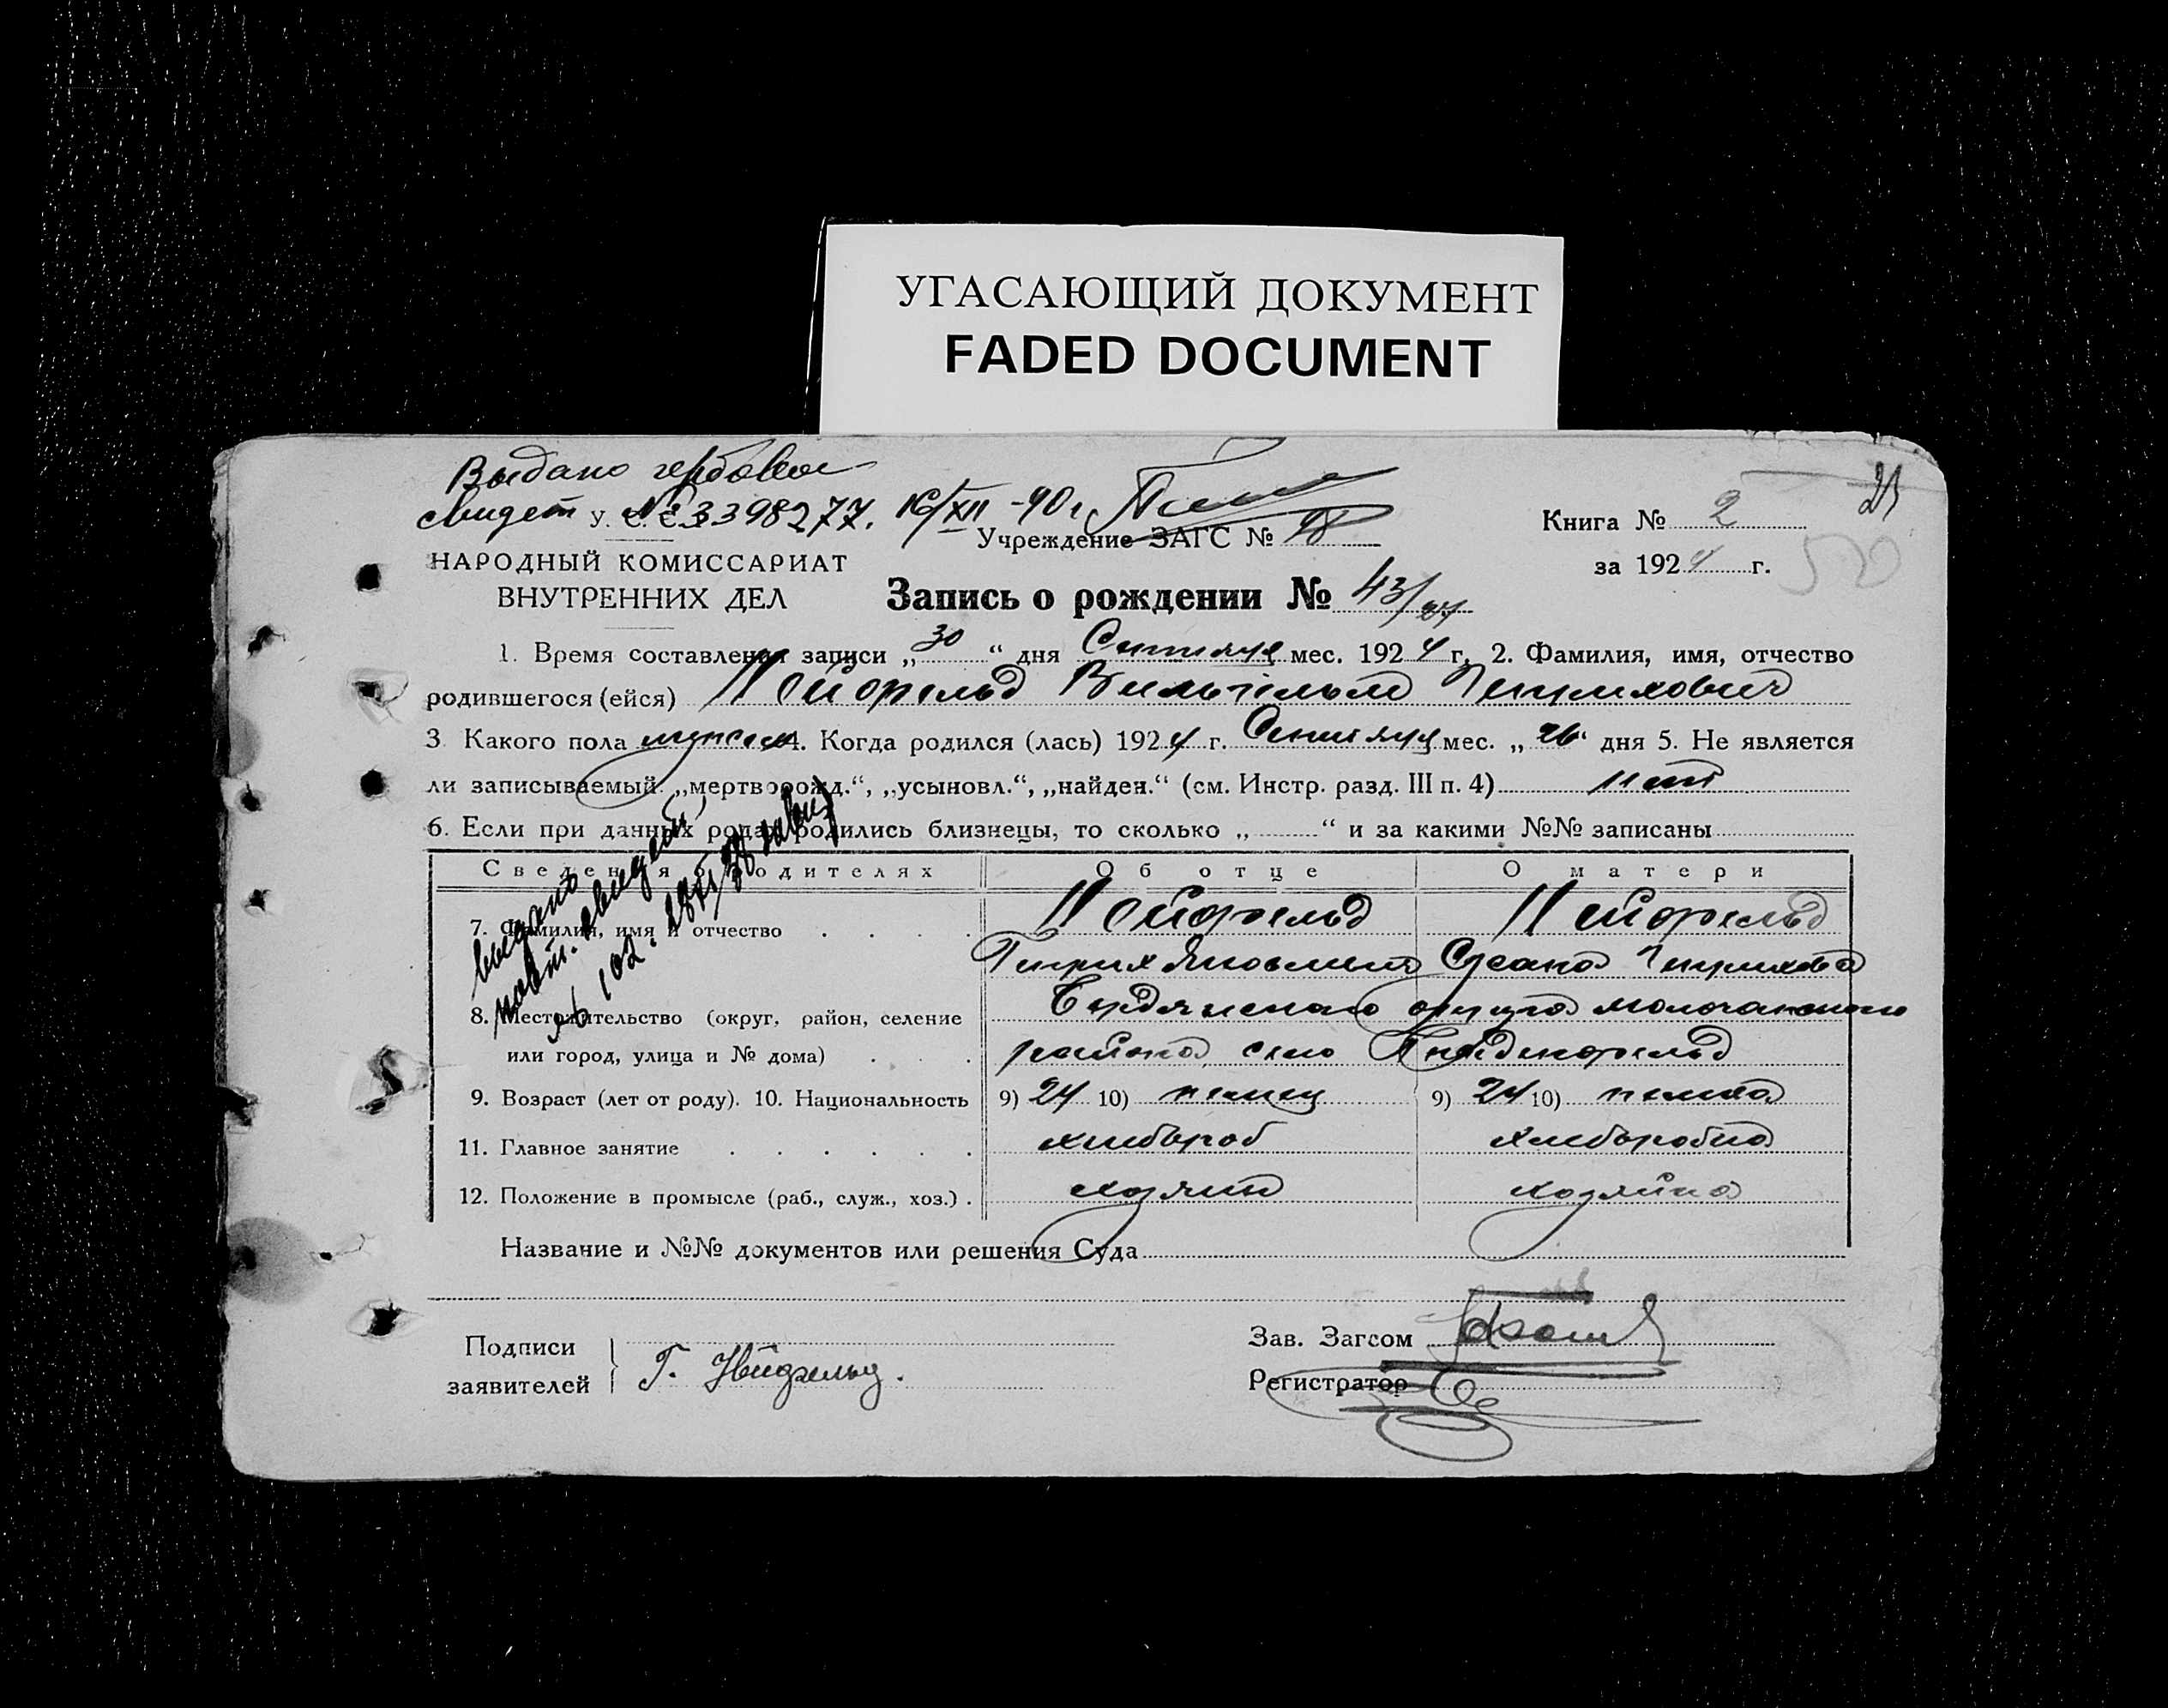 УГАСАЮЩИЙ ДОКУМЕНТ
FADED DOCUMENT
Выдано гербовое
свидет У. С. С. № 3398277. 16/XII -40 г.
Учреждение ЗАГС №
Книга № 2
21
за 1924 г.
50
НАРОДНЫЙ КОМИССАРИАТ
ВНУТРЕННИХ ДЕЛ
Запись о рождении № 43/
1. Время составления записи „30“ дня мес. 1924 г. 2. Фамилия, имя, отчество
родившегося (ейся) Нейфельд Вильгельм Генрихович
3 Какого пола мужской 4. Когда родился (лась) 1924 г. мес. „26“ дня 5. Не является
ли записываемый „мертворожд.“, „усыновл.“, „найден.“ (см. Инстр. разд. III п. 4) нет
6. Если при данных родах родились близнецы, то сколько „ “ и за какими №№ записаны
Сведения о родителях Об отце О матери
7. Фамилия, имя и отчество Нейфельд Нейфельд
Генрих Яковлевич Генриховна
8. Местожительство (округ, район, селение Бердянского округа Молочанского
или город, улица и № дома) района, село Гнаденфельд
9. Возраст (лет от роду). 10. Национальность 9) 24 10) немец 9) 24 10) немка
11. Главное занятие хлебороб хлеборобка
12. Положение в промысле (раб., служ., хоз.) хозяин хозяйка
выдано
повт. свидет.
№ 102.
Название и №№ документов или решения Суда
Подписи
заявителей Г. Нейфельд.
Зав. Загсом
Регистратор